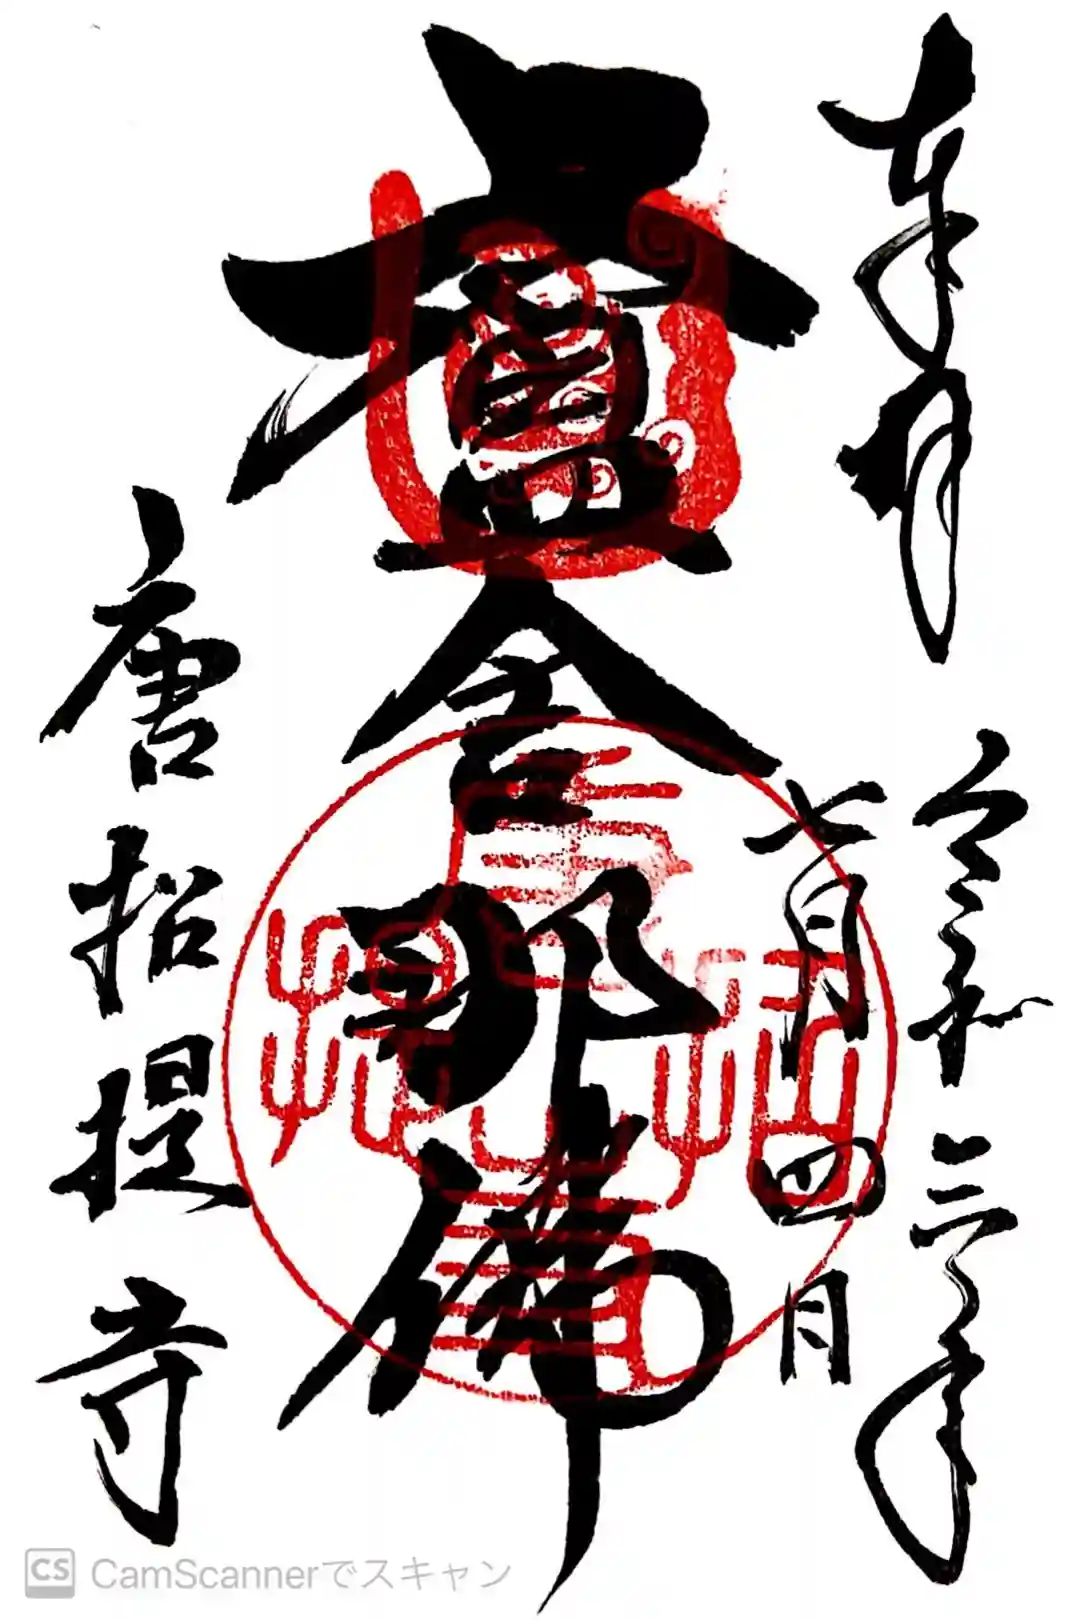 奉拝
令和三年
七月四日
盧舎那佛
唐招提寺
CS CamScannerでスキャン